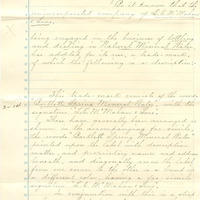 Be it known that the
unincorporated company of L. E. McMahan
& Sons,
being engaged in the business of bottling
and dealing in Natural Mineral Water
has adopted for its use, a trade mark,
of which the following is a description:
This trade mark consists of the words
"Bartlett Spring Mineral Water", with the
signature L. E. McMahan & Sons.
These have generally been arranged as
shown in the accompanying fac-simile,
the words Bartlett Spring Mineral Water
printed upon the label with descriptive
matter and particulars above and
beneath, and diagonally across the label
from one corner to the other is a band of
a different color, having a fac-simile
signature L. E. McMahan & Sons.
In conjunction with